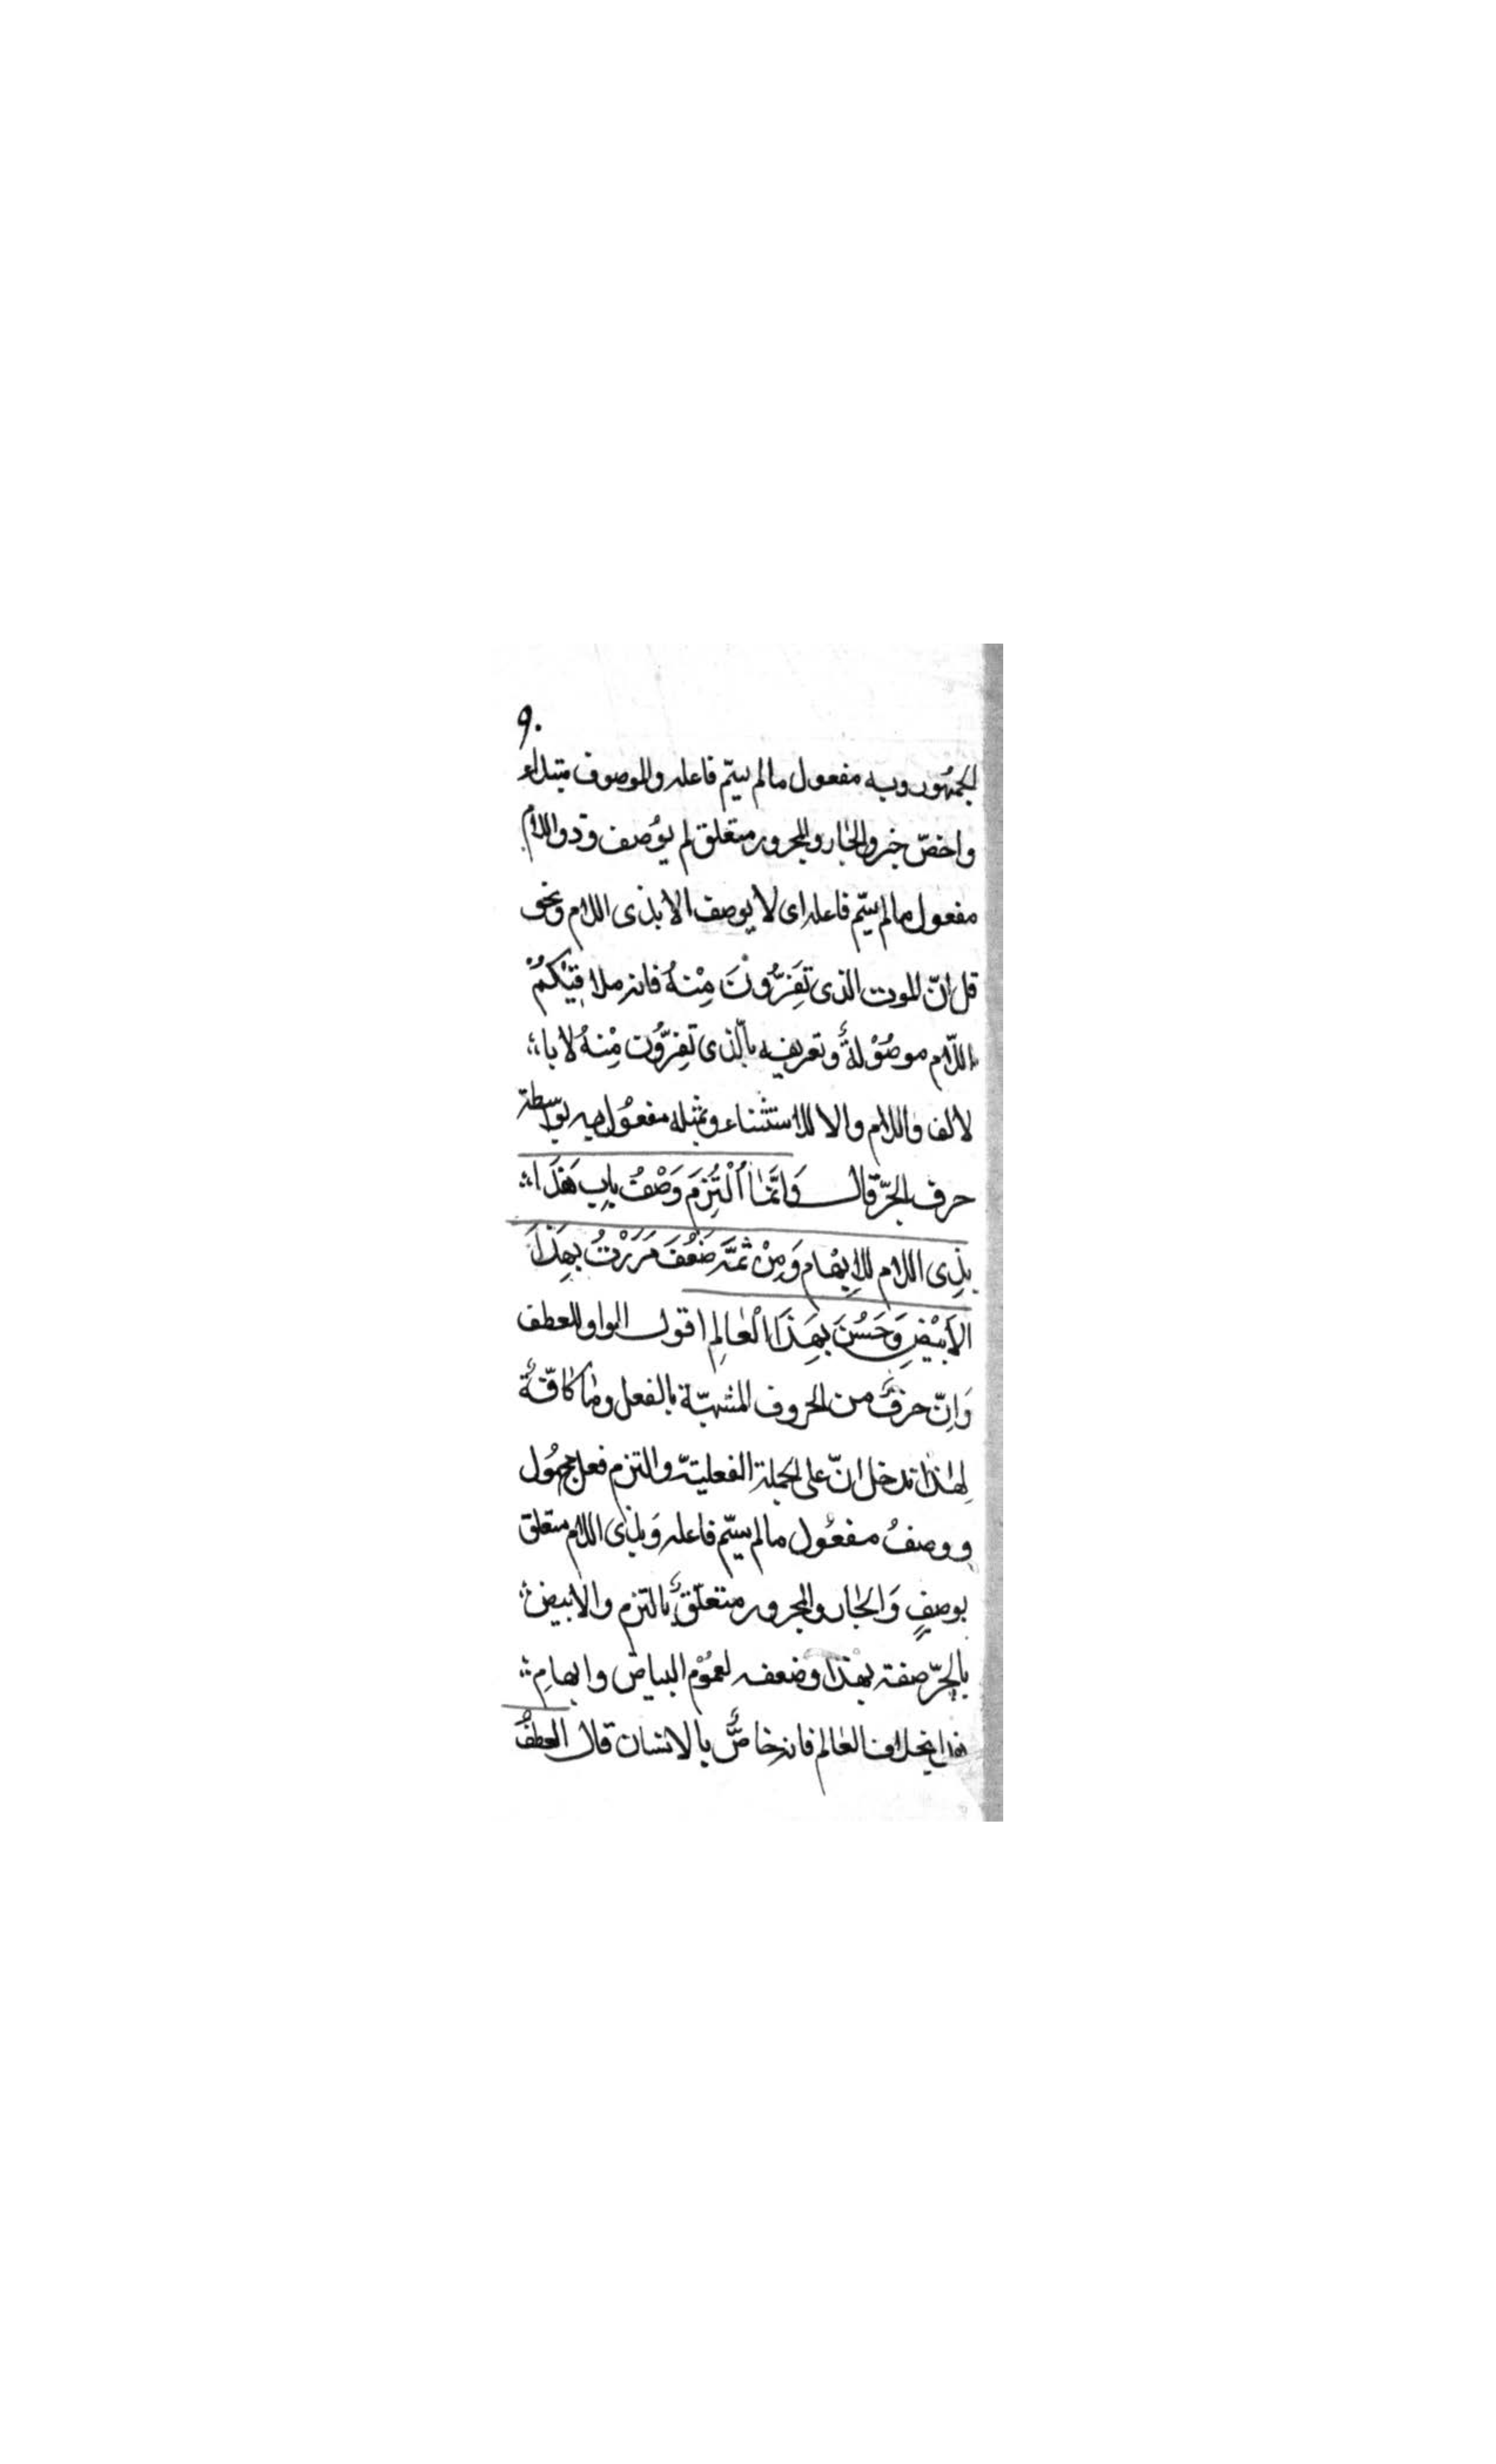 ٩٠
الجمهُور وبه مفعول مالم يسمّ فاعله والموصوف مبتداء
واخصّ خبر والجار والمجرور متعلق لم يوُصف وذواللام
مفعول مالم يسمّ فاعله اى لا يوصف الا بذى اللام ونحو
قل انّ الموت الذى تَفِرُّوْنَ مِنْهُ فانه ملاقِيْكُمْ
اللّام موصُوْلةٌ وتعريفه بالّذى تَفِرُّون مِنْهُ لا با
لالف واللام والا للاستثناء وبمثله مفعُول به بواسطة
حرف الجرّ قال وَاِنَّمَا اُلْتُزِمَ وَصْفُ بابِ هَذَا
بِذِى اللام لِلاِبهَام وَمِنْ ثَمَّ ضَعُفَ مَرَرْتُ بِهَذَا
الاَبْيَضِ وَحَسُنَ بِهَذَا الْعَالِمِ اقول الواو للعطف
وَاِنّ حَرْفٌ من الحروف المشبهّة بالفعل وما كافّةٌ
لِهٰذا تدخل انّ على الجملة الفعليّة والتزم فعل مجهُول
ووصفُ مفعُول مالم يسمّ فاعله وَبذى اللام متعلق
بوصفٍ وَالجار والمجرور متعلّقٌ بالتزم والابيض
بالجرّ صفة بهذا وضعفه لعمُوْم البياض وابهامِ
هذا بخلاف العالم فانه خاصٌّ بالانسان قال العطفُ